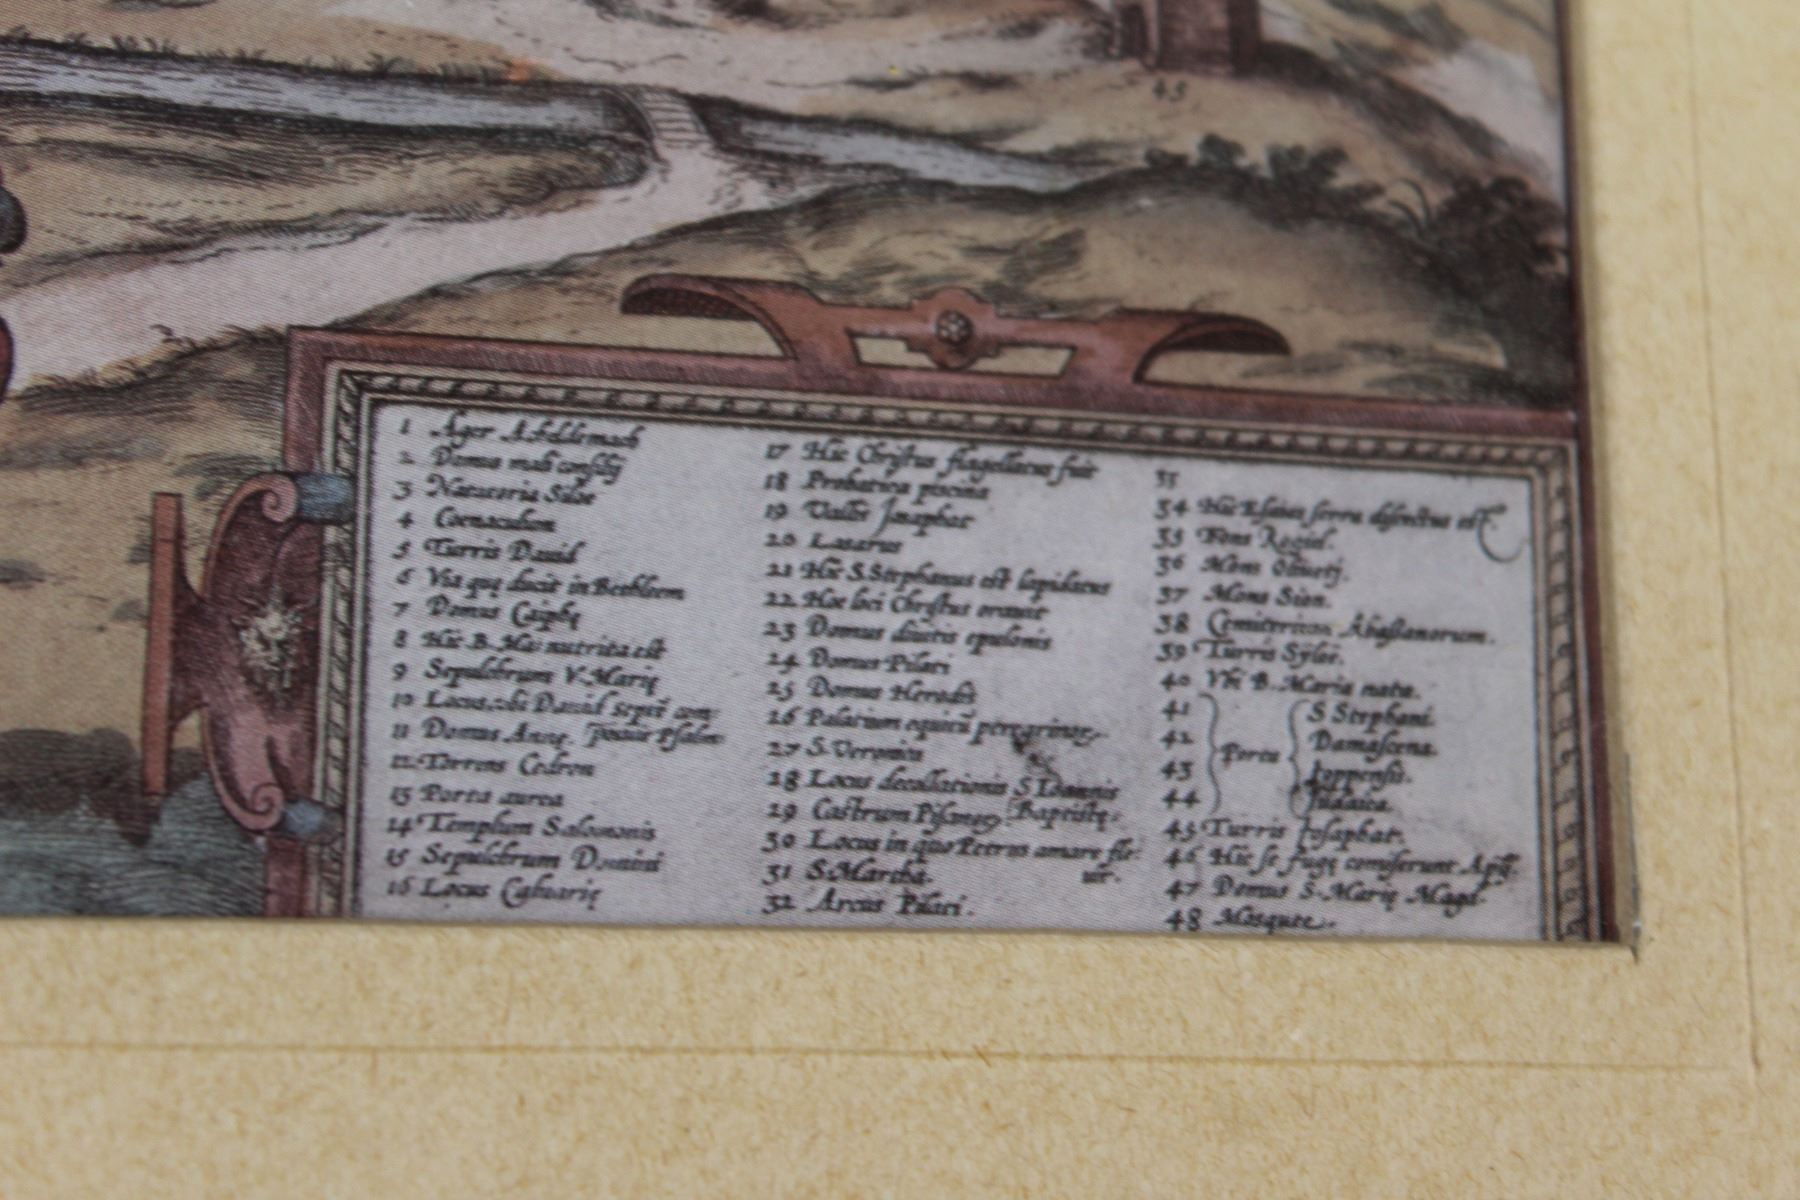 45
1 Ager Acheldemach
2 Domus mali consilij
3 Natatoria Siloe
4 Coenaculum
5 Turris Dauid
6 Via quę ducit in Bethleem
7 Domus Caiphę
8 Hic B. Ma: nutrita est
9 Sepulchrum V. Marię
10 Locus, ubi Dauid septē
11 Domus Annę. Psalm
12 Torrens Cedron
13 Porta aurea
14 Templum Salomonis
15 Sepulchrum Domini
16 Locus Caluarię
17 Hic Christus flagellatus fuit
18 Probatica piscina
19 Vallis Josaphat
20 Lazarus
21 Hic S. Stephanus est lapidatus
22 Hoc loci Christus orauit
23 Domus diuitis epulonis
24 Domus Pilati
25 Domus Herodis
26 Palatium equitū peregrinor.
27 S. Veronica
28 Locus decollationis S Ioannis
29 Castrum Pisanor Baptistę.
30 Locus in quo Petrus amare fle
31 S. Martha. uit.
32 Arcus Pilati.
33
34 Hic Esaias serra dissectus est
35 Fons Rogiel.
36 Mons Oliueti.
37 Mons Sion.
38 Cemiterium Abastanorum.
39 Turris Syloë.
40 Vbi B. Maria nata.
41 S Stephani.
42 Porta Damascena
43 Ioppensis.
44 Iudaica.
45 Turris Iosaphat.
46 Hic se fugę comiserunt Apľi.
47 Domus S. Marię Magd.
48 Mosquee.